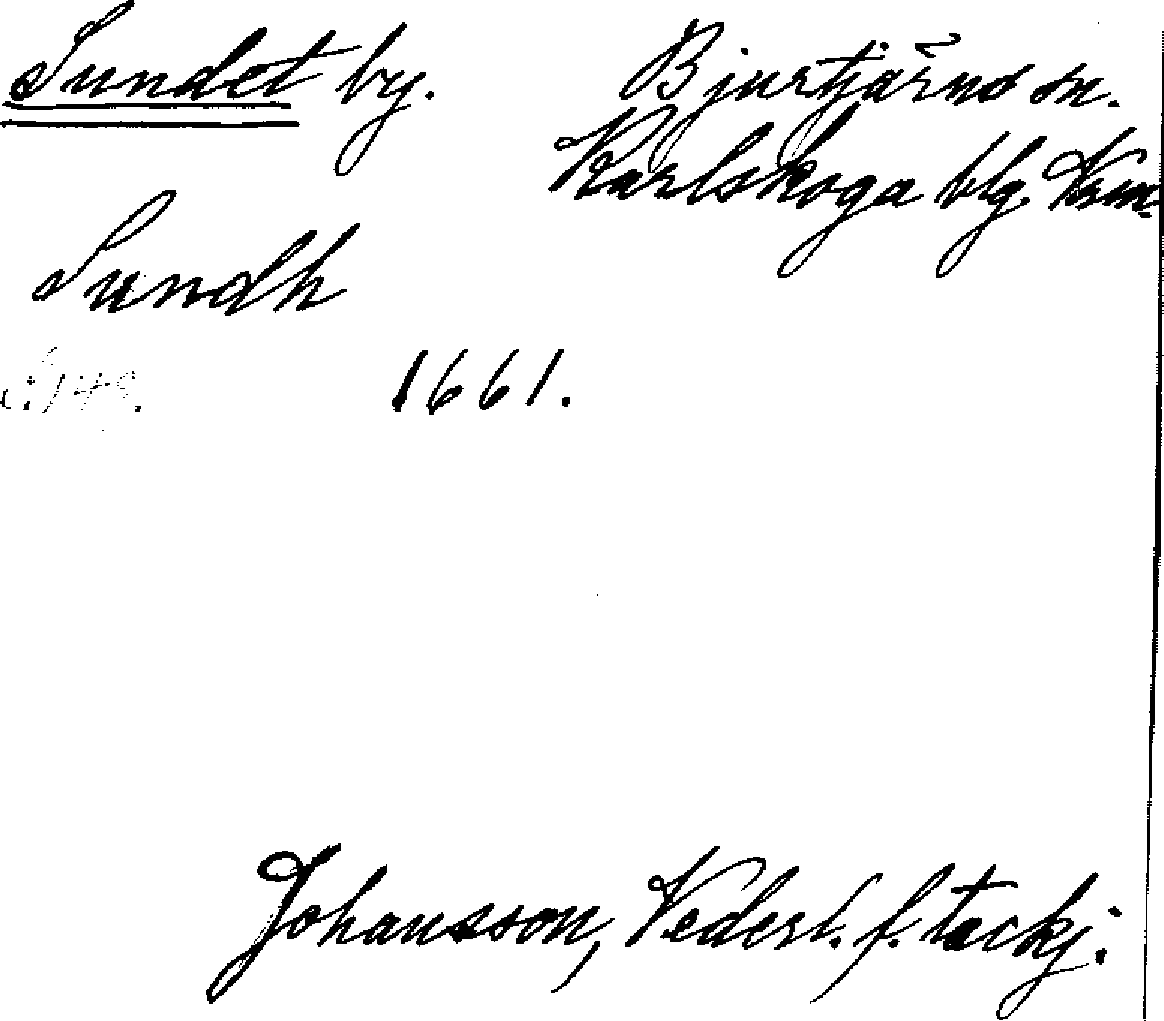 Sundet by. Bjurtjärns sn.
Karlskoga blg. Krm.
Sundh
1661.
Johansson, Vederl. f. tackj: